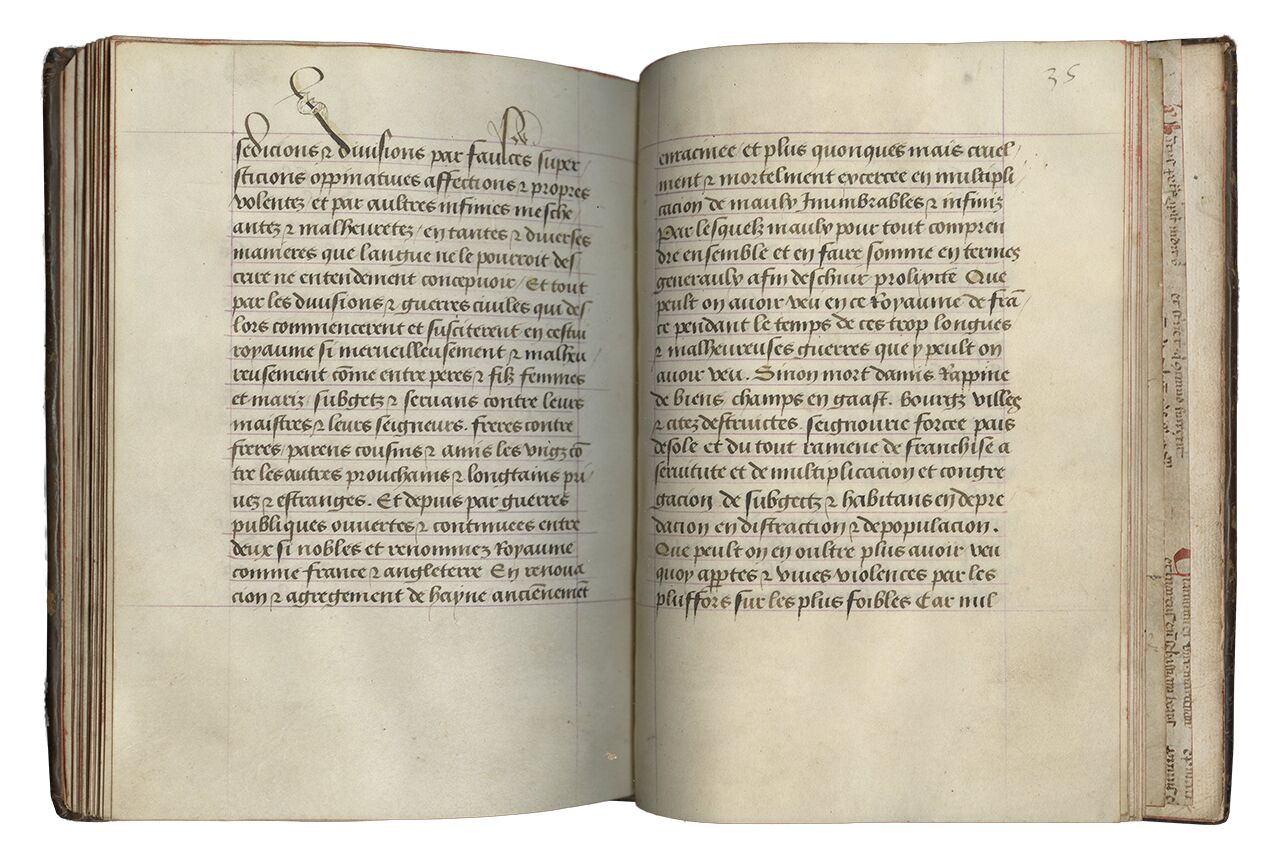 sedicions ⁊ divisions par faulces super
sticions oppinatives affections ⁊ propres
volentez et par aultres infimes mesche
antez ⁊ malheuretez / en tantes ⁊ diverses
manieres que langue ne le pourroit des
crire ne entendement concepvoir / Et tout
par les divisions ⁊ guerres civiles qui des
lors commencerent et susciterent en cestui
royaume si merveilleusement ⁊ malheu
reusement cōme entre peres ⁊ filz femmes
et mariz subgetz ⁊ servans contre leurs
maistres ⁊ leurs seigneurs. freres contre
freres / parens cousins ⁊ amis les vngz cō
tre les autres prouchains ⁊ longtains pri
uez ⁊ estranges. Et depuis par guerres
publiques ouvertes ⁊ continuees entre
deux si nobles et renommez Royaume
comme france ⁊ angleterre En renoua
cion ⁊ agregement de hayne anciēnemēt
35
enracinee / et plus quonques mais cruel
ment ⁊ mortelment exercee en multipli
cacion de maulx Inumbrables ⁊ infiniz
Par lesquelz maulx pour tout compren
dre ensemble et en faire somme en termes
generaulx afin deschiur prolixite Que
peult on avoir veu en ce Royaume de frā
ce pendant le temps de ces trop longues
⁊ malheureuses guerres que y peult on
avoir veu. Sinon mort damis Rappine
de biens champs en gaast. Bourgz villes
⁊ citez destructes. seignourie forcee pais
desole et du tout ramene de franchise a
servitute et de multiplicacion et congre
gacion de subgectz ⁊ habitans en depre
dacion en distraction ⁊ depopulacion.
Que peult on en oultre plus avoir veu
quoy aptes ⁊ vives violences par les
plussfors sur les plus foibles Car nul